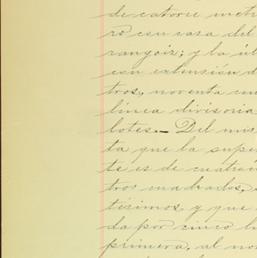 de catorce metr
ro con casa del
rangoiz; y la úl
con extensión d
tros, noventa cen
línea divisoria
lotes.- Del mis
ta que la supe
te es de cuatroci
tros cuadrados,
tésimos y que
da por cinco l
primera, al no